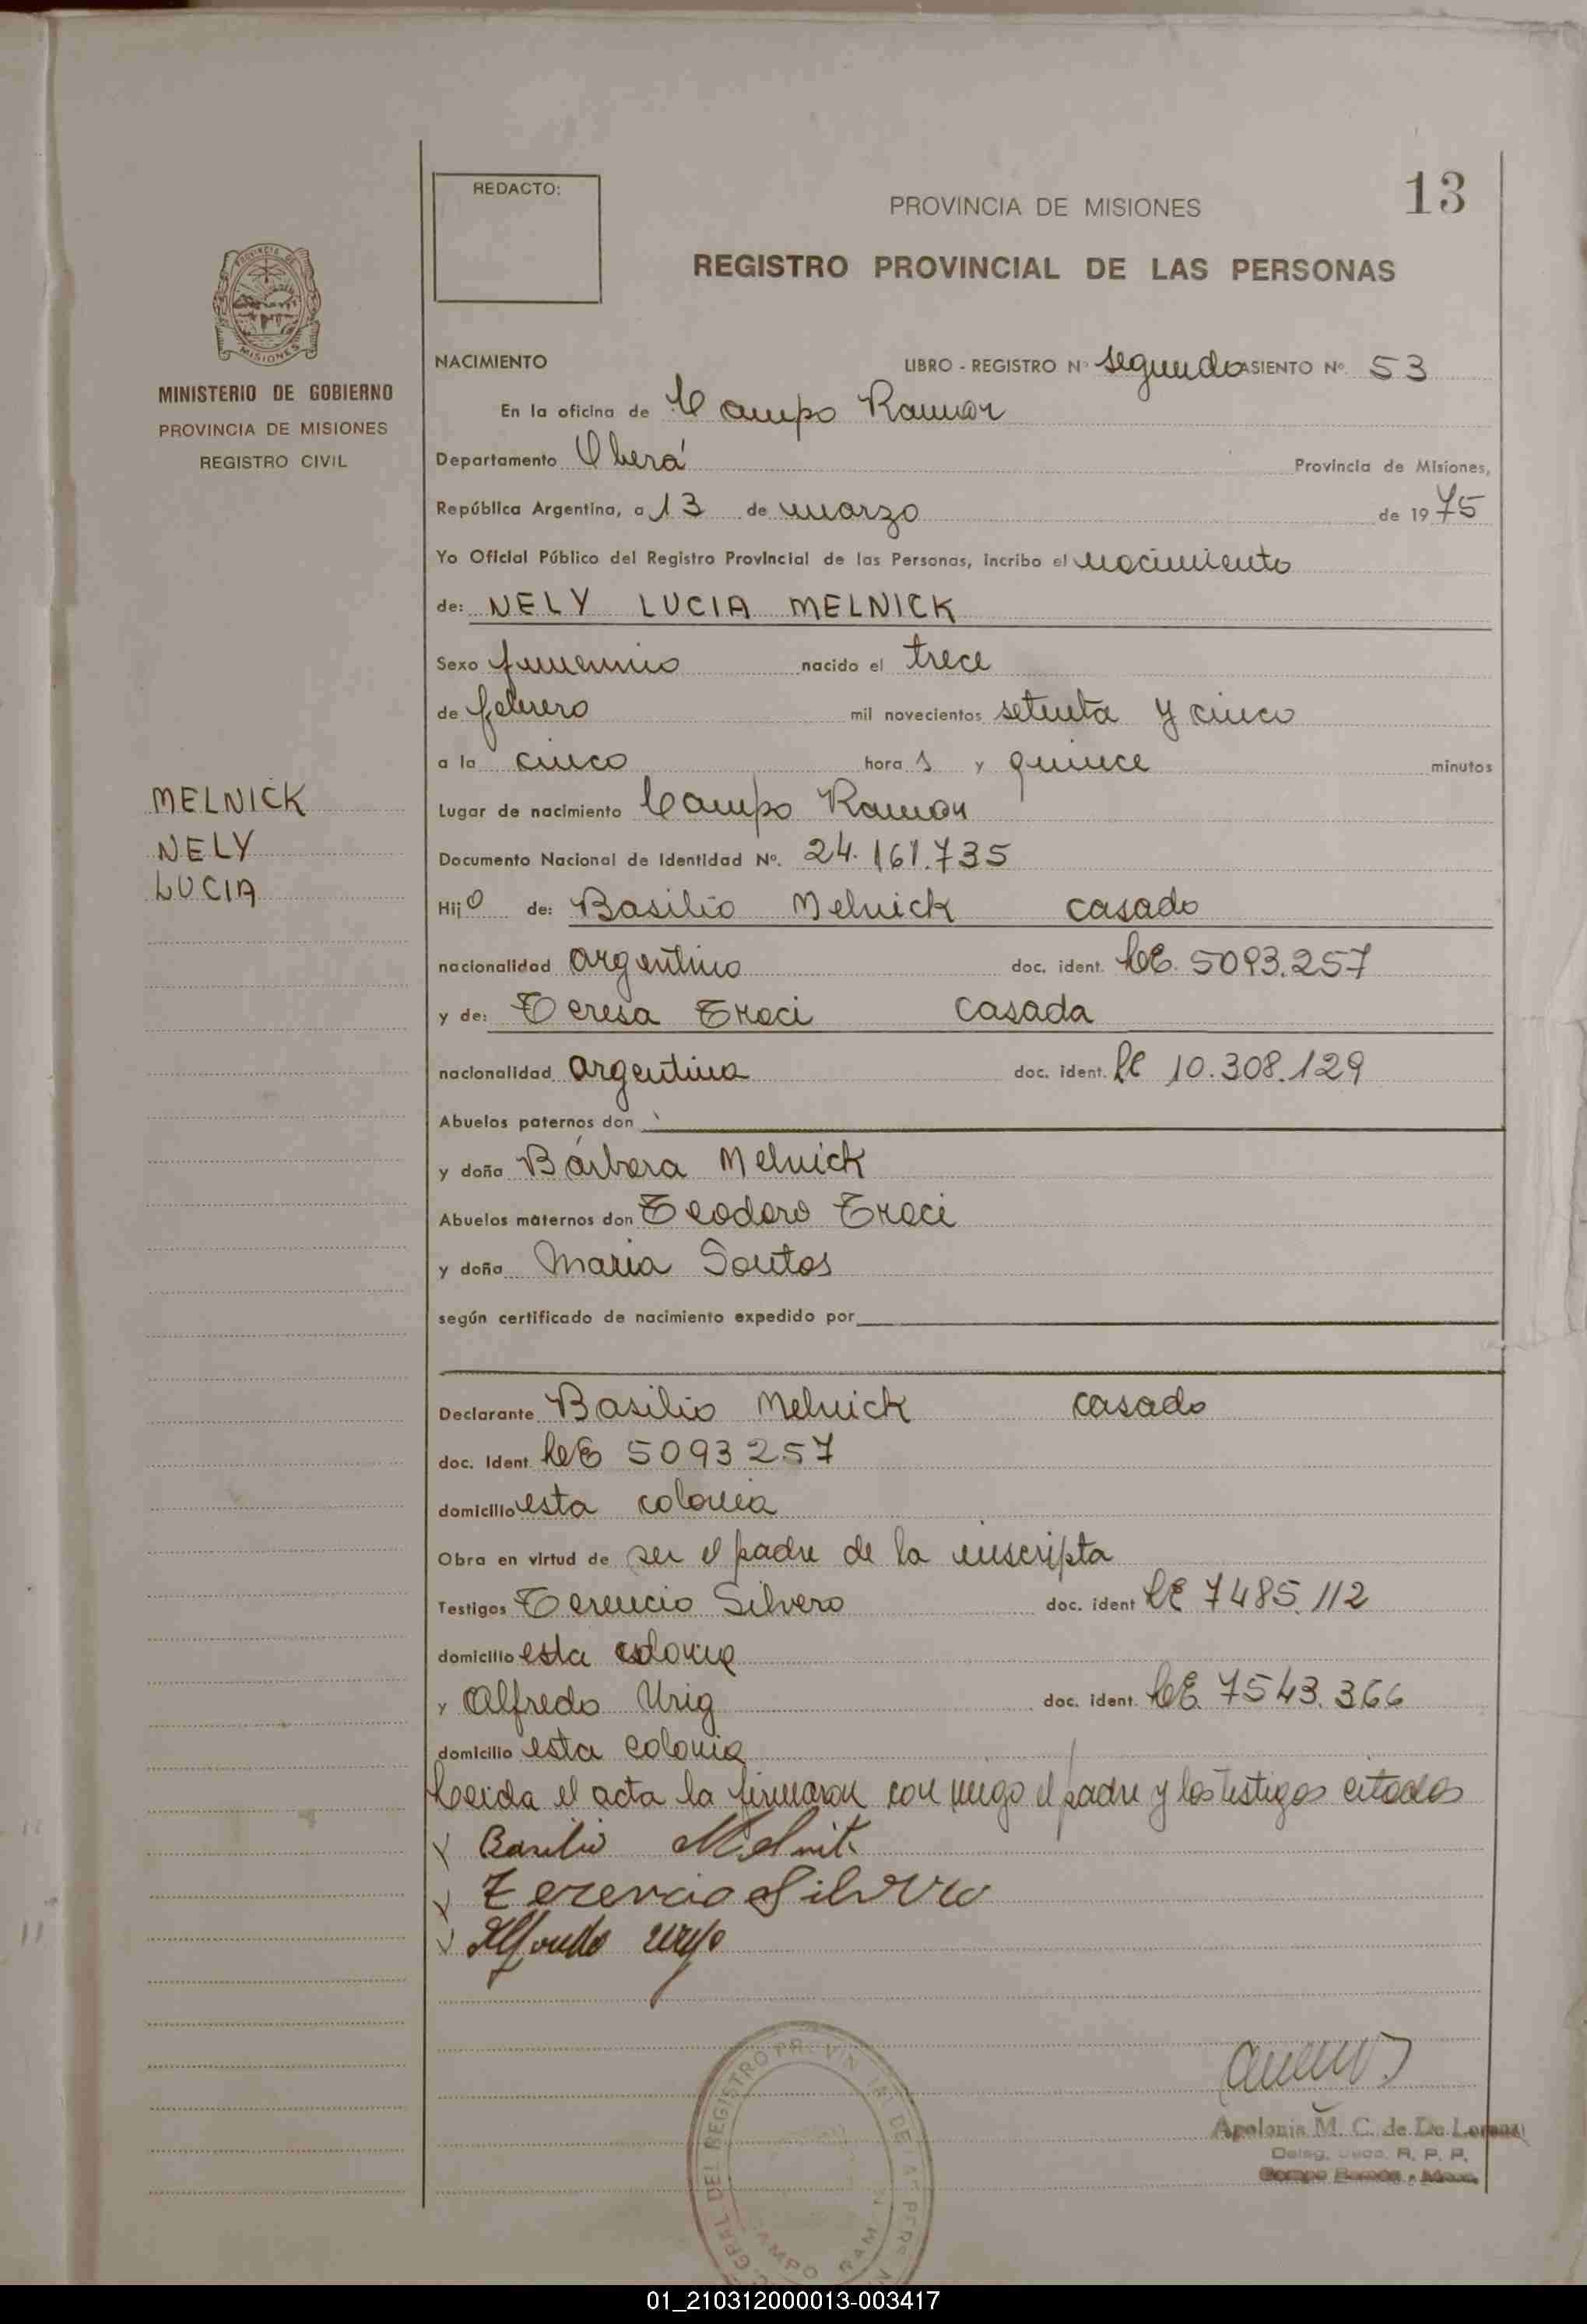 REDACTO:
PROVINCIA DE MISIONES
13
REGISTRO PROVINCIAL DE LAS PERSONAS
PROVINCIA DE
MISIONES
MINISTERIO DE GOBIERNO
PROVINCIA DE MISIONES
REGISTRO CIVIL
MELNICK
NELY
LUCIA
NACIMIENTO LIBRO - REGISTRO Nº segundo ASIENTO Nº. 53
En la oficina de Campo Ramón
Departamento Oberá Provincia de Misiones,
República Argentina, a 13 de marzo de 1975
Yo Oficial Público del Registro Provincial de las Personas, incribo el nacimiento
de: NELY LUCIA MELNICK
Sexo femenino nacido el trece
de febrero mil novecientos setenta y cinco
a la cinco hora s y quince minutos
Lugar de nacimiento Campo Ramon
Documento Nacional de Identidad Nº. 24.161.735
Hijo de: Basilio Melnick casado
nacionalidad argentino doc. ident. LE. 5093.257
y de: Teresa Traci casada
nacionalidad argentina doc. ident. LC 10.308.129
Abuelos paternos don
y doña Bárbara Melnick
Abuelos maternos don Teodoro Traci
y doña Maria Santos
según certificado de nacimiento expedido por
Declarante Basilio Melnick casado
doc. Ident LE 5093257
domicilio esta colonia
Obra en virtud de ser el padre de la inscripta
Testigos Terencio Silvero doc. ident LE 7485.112
domicilio esta colonia
y Alfredo Urig doc. ident. LE. 7543.366
domicilio esta colonia
Leida el acta la firmaron con migo el padre y los testigos citados
Basilio Melnik
Terencio Silvero
Alfredo
Apolonia M. C. de De Lorenzi
Deleg. R. P. P.
Campo Ramón - Mnes.
GRAL DEL REGISTRO PROVINCIAL DE LAS PERS
CAMPO RAM
01_210312000013-003417